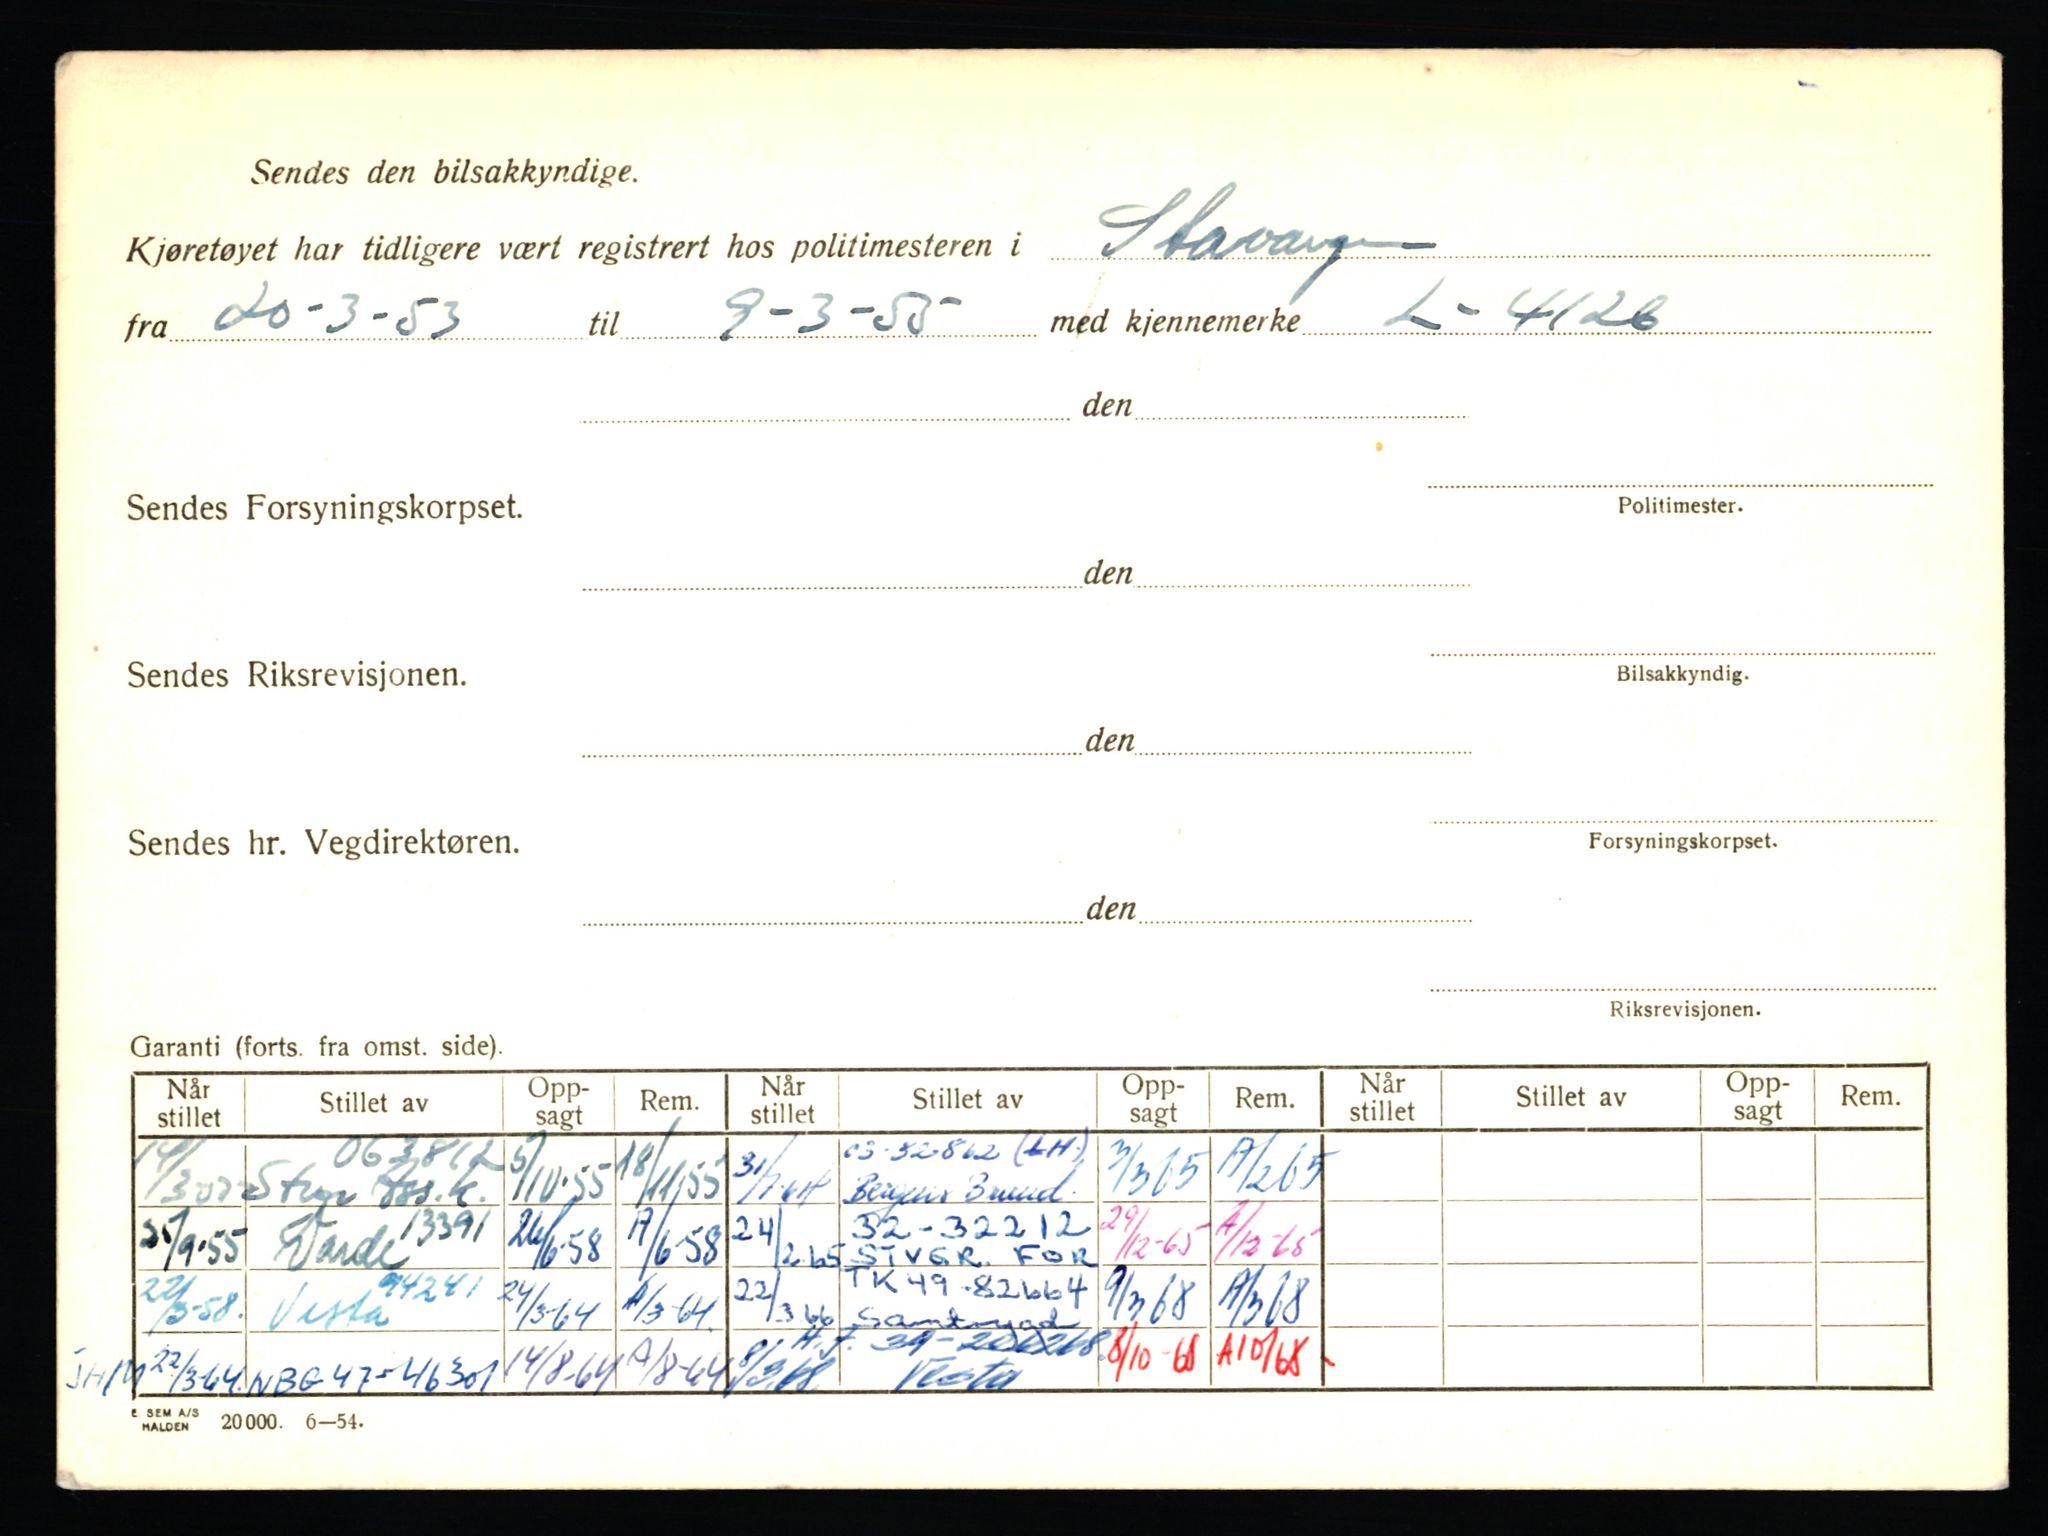 Sendes den bilsakkyndige.
Kjøretøyet har tidligere vært registrert hos politimesteren i Stavanger
fra 20-3-53 til 9-3-55 med kjennemerke L-4126
den
Politimester.
Sendes Forsyningskorpset.
den
Bilsakkyndig.
Sendes Riksrevisjonen.
den
Forsyningskorpset.
Sendes hr. Vegdirektøren.
den
Riksrevisjonen.
Garanti (forts. fra omst. side).
Når stillet Stillet av Opp-sagt Rem. Når stillet Stillet av Opp-sagt Rem. Når stillet Stillet av Opp-sagt Rem.
063812 5/10-55 18/11,55 03-52862 (LH.) 3/3 65 A/2 65
Bergens Brand.
/9-55 Varde 13391 26/6-58 A/6-58 24/2 65 52-32212 STVGR. FOR 29/12-65 A/12-65
22/3-58. Vesta 94241 24/3-64 A/3-64. 22/3 66 TK 49-82664 Samtrygd 9/3 68 A/3 68
22/3-64. NBG 47-46301 14/8-64 A/8-64 8/3.68. Vesta 8/10-68 A10/68
E SEM A/S
HALDEN 20 000. 6—54.